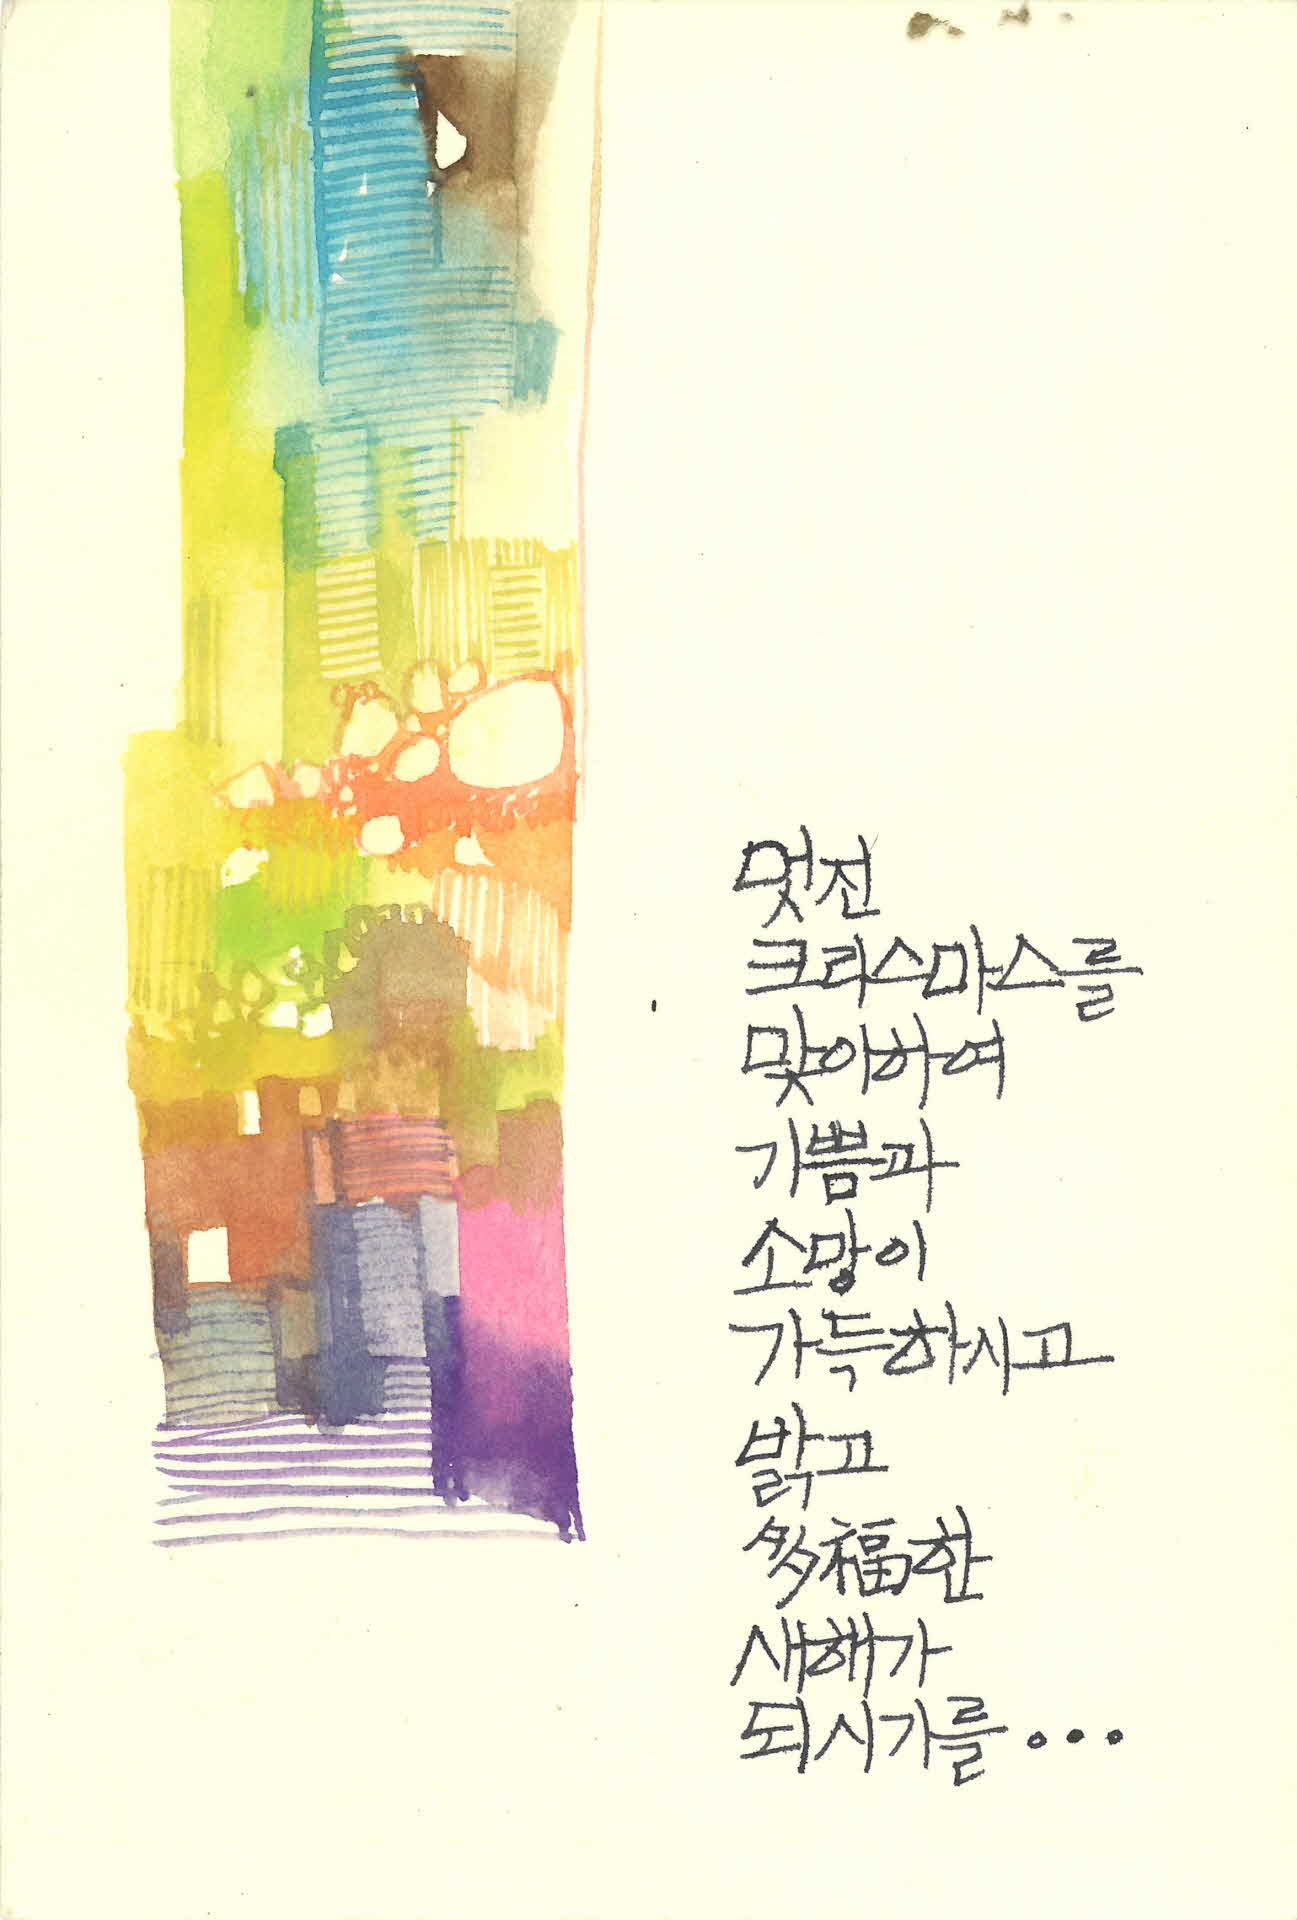 멋진
크리스마스를
맞이하여
기쁨과
소망이
가득하시고
밝고
多福한
새해가
되시기를...